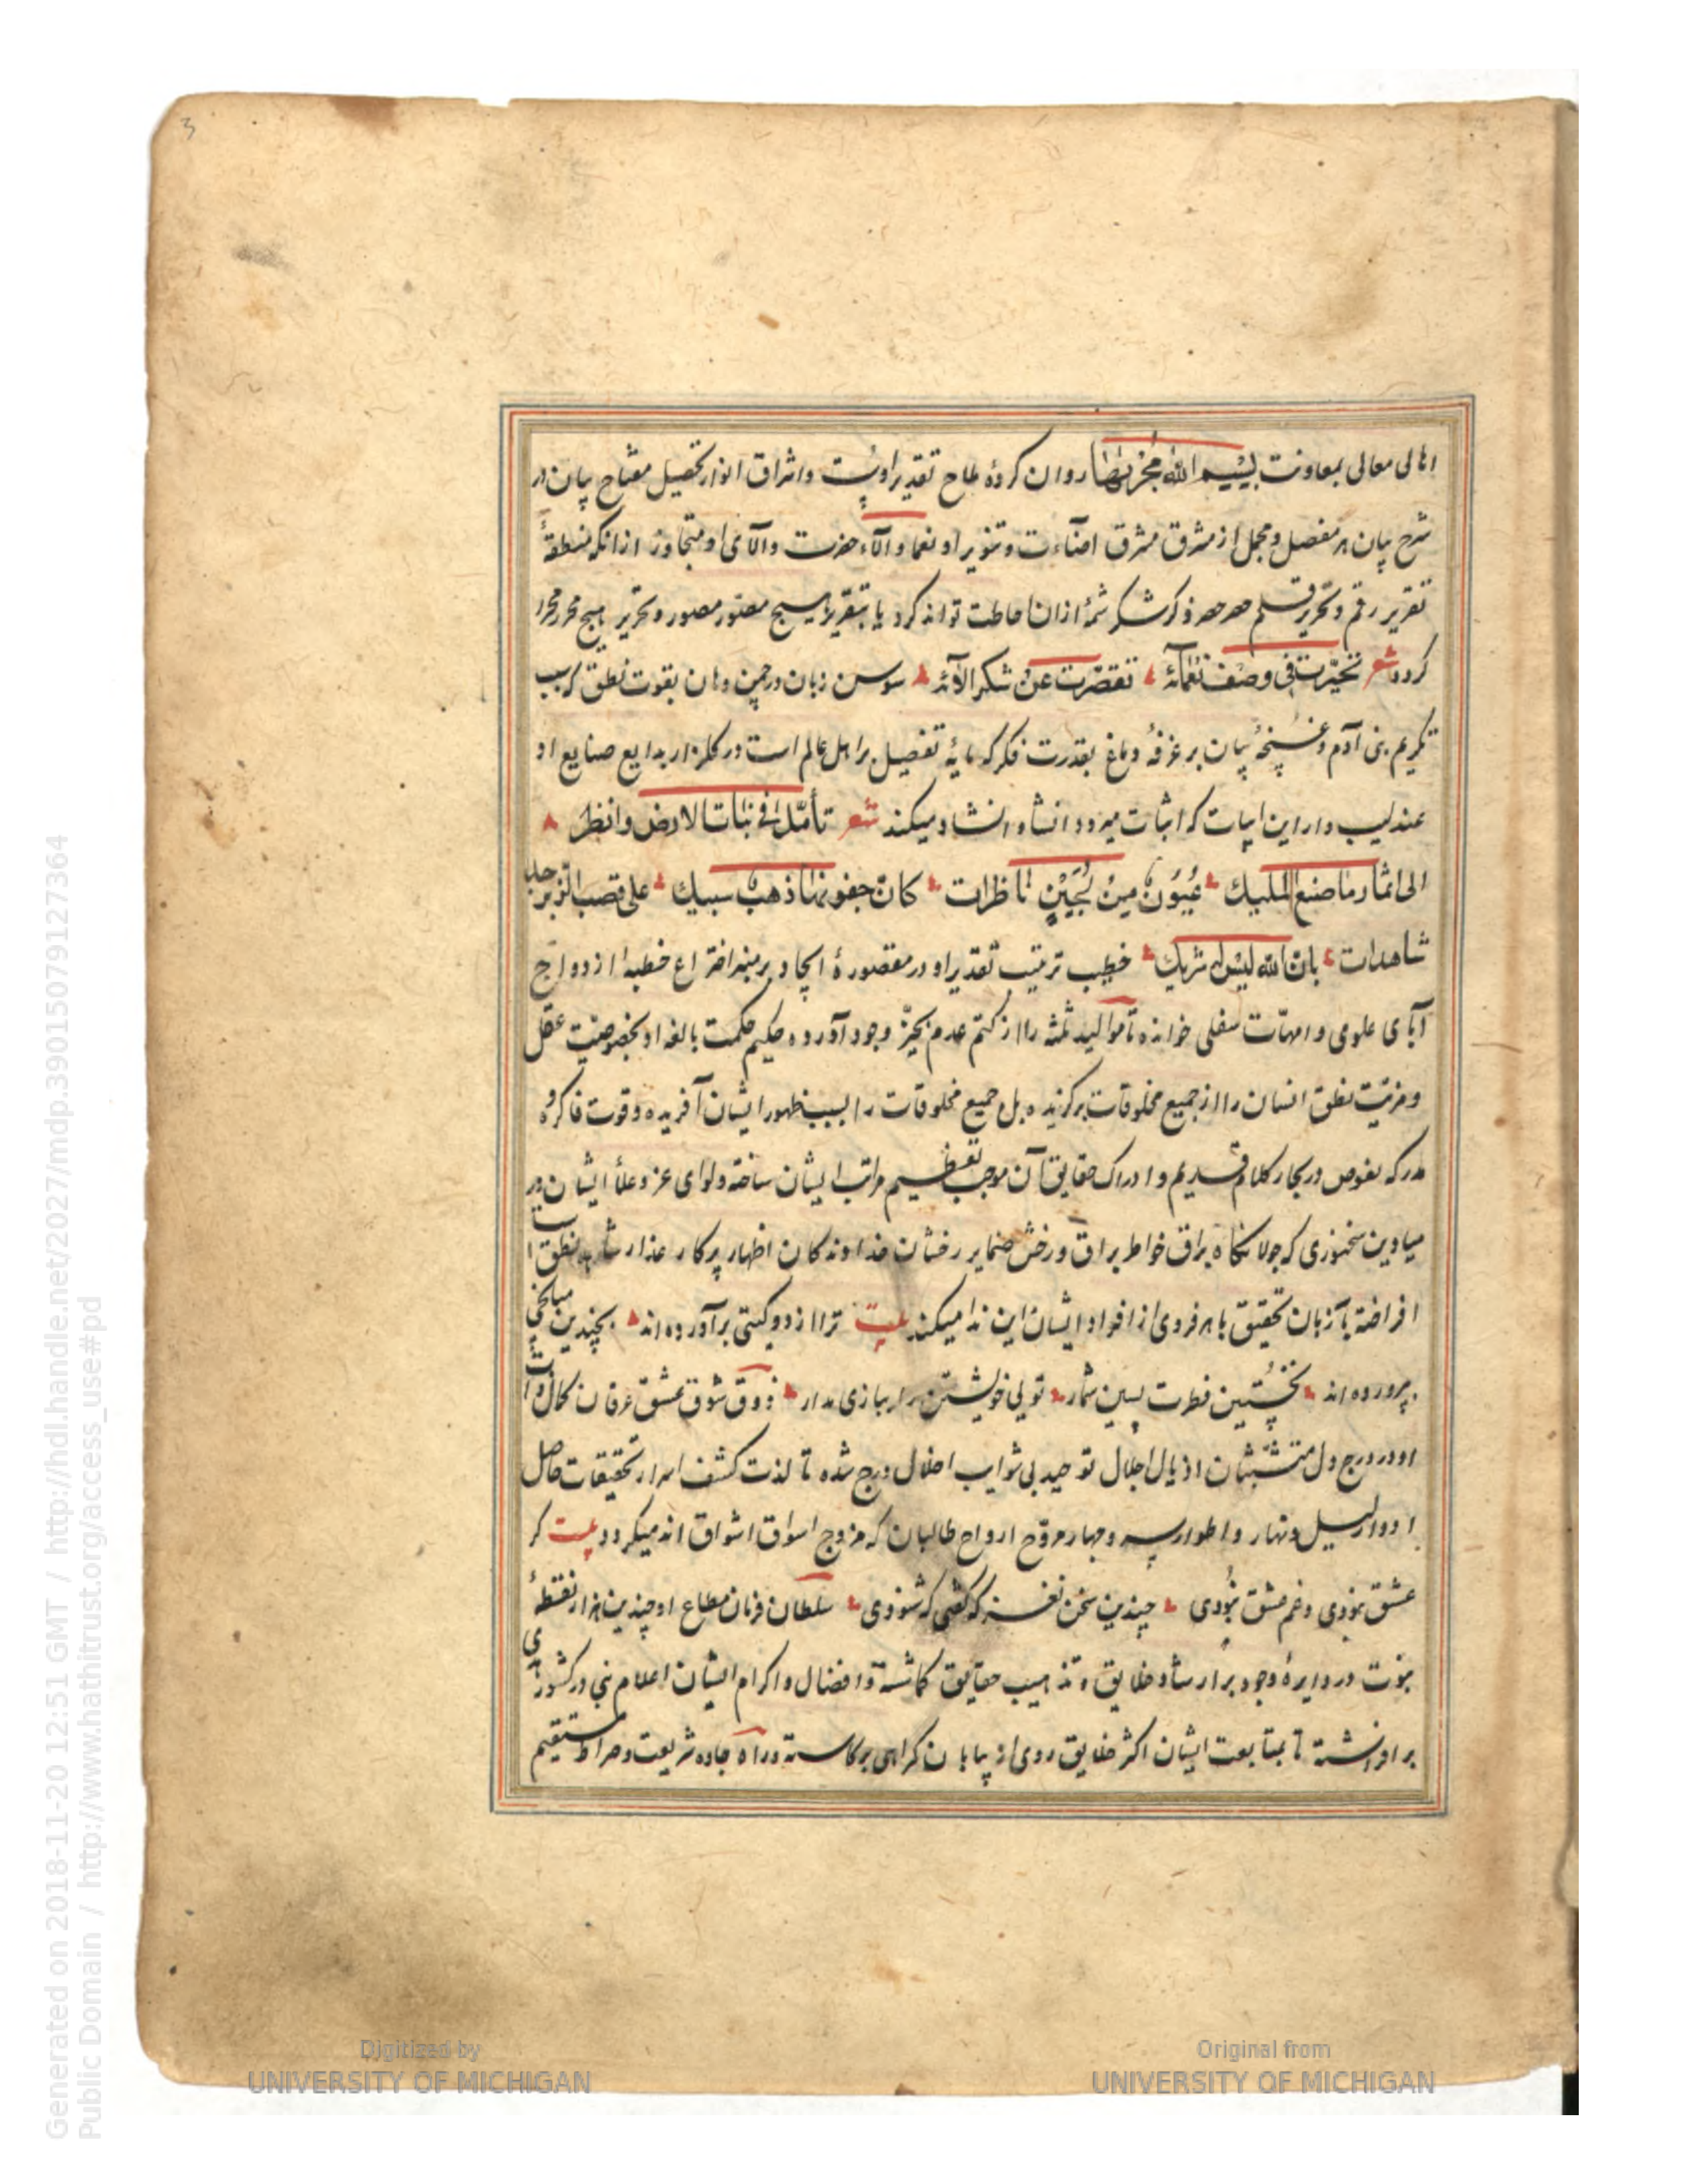 3
اهالی معالی بمعاونت بِسْمِ اللّٰهِ مَجْرٰىهَا روان کردهٔ ملاح تقدیر اوست واشراق انوار تحصیل مفتاح بیان در
شرح بیان هر مفصل و مجمل از مشرق مشرق اضآءت و تنویر او نعما و الآء حضرت والآی او متجاوز از انکه منطقهٔ
تقریر رقم و تحریر قلم حصر حصر ذکر شکر شمهٔ ازان احاطت تواند کرد یا بتقریر هیچ مصور مصور و تحریر هیچ محرر محرر
کردد شعر تحیّرت فی وصف نعمائه تقصّرت عن شکر الآئه سوسن زبان در چمن دهان بقوت نطق که سبب
تکریم بنی آدم و غنچهٔ بیان بر غرفهٔ دماغ بقدرت فکر که مایهٔ تفضیل بر اهل عالم است در کلزار بدایع صنایع او
عندلیب وار این ابیات که اثبات میرود انشاء و انشاد میکند شعر تأمّل فی نبات الارض وانظر
الی اثار ما صنع الملیک عُیُونٌ مِنْ لُجَیْنٍ ناظرات کان جفونها ذهب سبیک علی قصب الزبرجد
شاهدات بان الله لیس له شریک خطیب ترتیب تقدیر او در مقصورهٔ ایجاد بر منبر اختراع خطبهٔ ازدواج
آبای علوی و امهات سفلی خوانده تا موالید ثلثه را از کتم عدم بحیّز وجود آورده حکیم حکمت بالغه او بخصوصیت عقل
و مزیت نطق انسان را از جمیع مخلوقات برکزیده بل جمیع مخلوقات را بسبب ظهور ایشان آفریده و قوت فاکره و
مدرکه بغوص در بحار کلام قدیم و ادراک حقایق آن موجب تعظیم مراتب ایشان ساخته و لوای عز و علاء ایشان در
میادین سخنوری که جولانکاه براق خواطر براق و رخش ضمایر رخشان خداوندکان اظهار پرکار عذار نطق
افراخته تا زبان تحقیق با هر فردی از افراد ایشان این ندا میکند بیت ترا از دو کیتی برآورده اند بچندین میانجی
بپرورده اند نخستین فطرت پسین شمار تویی خویشتن را ببازی مدار ذوق شوق عشق عرفان کمال ذات
او در درج دل متشبثان اذیال اجلال توحید بی شوایب اخلال درج شده تا لذت کشف اسرار تحقیقات حاصل
ادوار لیل و نهار و اطوار وبهار مروح ارواح طالبان که مزوج اسواق اشواق اند میکردد بیت کر
عشق نبودی و غم عشق نبودی چندین سخن نغز که کفتی که شنودی سلطان فرمان مطاع او چندین هزار نقطهٔ
نبوت در دایرهٔ وجود بر ارشاد خلایق و تذهیب حقایق کماشته و افضال و اکرام ایشان اعلام نبی در کشور
برافراشته تا بمتابعت ایشان اکثر خلایق روی از بیابان کمراهی برکاسته و راه جاده شریعت و صراط مستقیم
Digitized by
UNIVERSITY OF MICHIGAN
Original from
UNIVERSITY OF MICHIGAN
Generated on 2018-11-20 12:51 GMT / http://hdl.handle.net/2027/mdp.39015079127364
Public Domain / http://www.hathitrust.org/access_use#pd